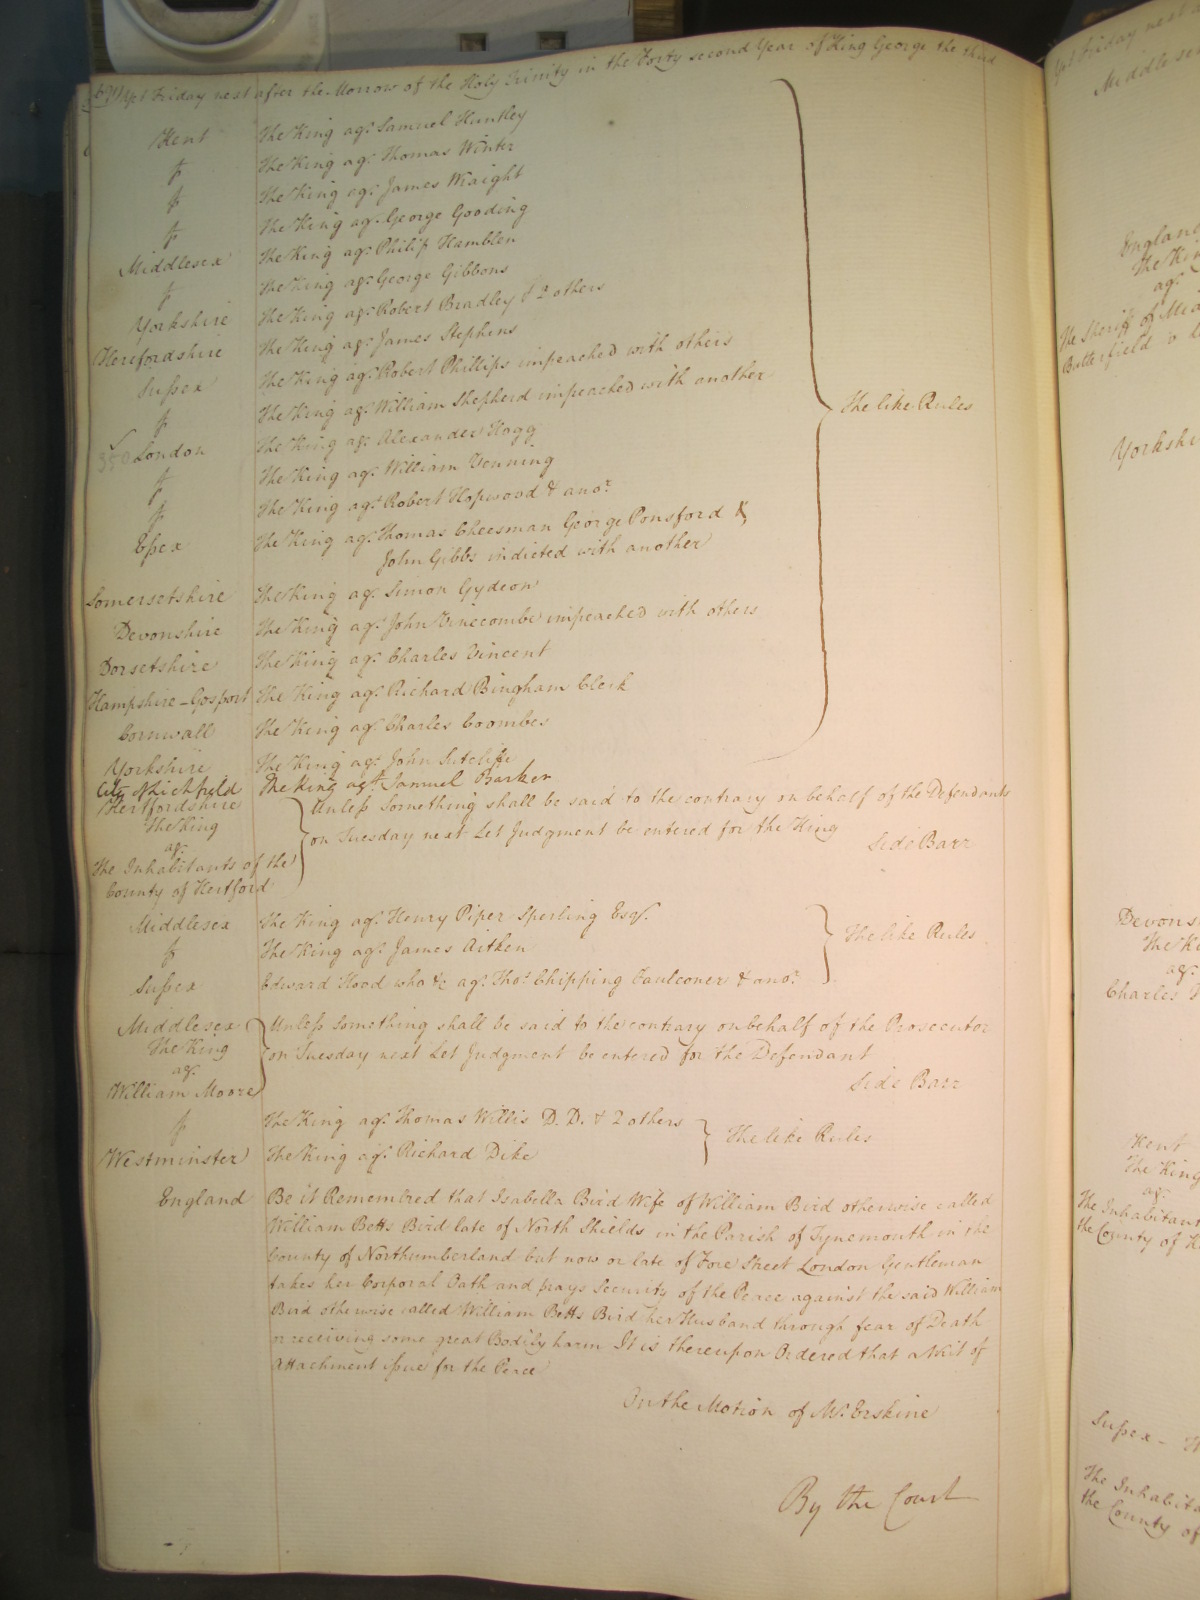 Yet Friday next after the Morrow of the Holy Trinity in the Forty second Year of King George the third
Kent The King agt. Samuel Huntley
The King agt. Thomas Winter
The King agt. James Wraight
The King agt. George Gooding
Middlesex The King agt. Philip Hamblen
The King agt. George Gibbons
Yorkshire The King agt. Robert Bradley & 2 others
Herefordshire The King agt. James Stephens
Sussex The King agt. Robert Phillips impeached with others
The King agt. William Shepherd impeached with another
London The King agt. Alexander Hogg
The like Rules
The King agt. William Venning
The King agt. Robert Hopwood & anor.
Essex The King agt. Thomas Cheesman George Ponsford &
John Gibbs indicted with another
Somersetshire The King agt. Simon Gydeon
Devonshire The King agt. John Vinecombe impeached with others
Dorsetshire The King agt. Charles Vincent
Hampshire - Gosport The King agt. Richard Bingham Clerk
Cornwall The King agt. Charles Coombes
Yorkshire The King agt. John Sutcliffe
City of Lichfield The King agt. Samuel Barker
Hertfordshire
The King
agt.
The Inhabitants of the
County of Hertford
Unless Something shall be said to the contrary on behalf of the Defendants
on Tuesday next Let Judgment be entered for the King
Side Barr
Middlesex The King agt. Henry Piper Sperling Esqr.
The King agt. James Aitken
Sussex Edward Hood who &c agt. Thos. Chipping Faulconer & anor.
The like Rules
Middlesex
The King
agt.
William Moore
Unless Something shall be said to the contrary on behalf of the Prosecutor
on Tuesday next Let Judgment be entered for the Defendant
Side Barr
The King agt. Thomas Willis D.D. & 2 others
Westminster The King agt. Richard Dike
The like Rules
England Be it Remembred that Isabella Bird Wife of William Bird otherwise called
William Betts Bird late of North Shields in the Parish of Tynemouth in the
County of Northumberland but now or late of Fore Street London Gentleman
takes her Corporal Oath and prays Security of the Peace against the said William
Bird otherwise called William Betts Bird her Husband through fear of Death
or receiving some great Bodily harm It is thereupon Ordered that a Writ of
Attachment issue for the Peace
On the Motion of Mr. Erskine
By the Court
Yet Friday next
England
The King
agt.
The Sheriff of
Butterfield v
Devons
agt.
Charles
Kent
The King
agt.
The Inhabitant
the County of
Sussex -
The Inhabit
the County of